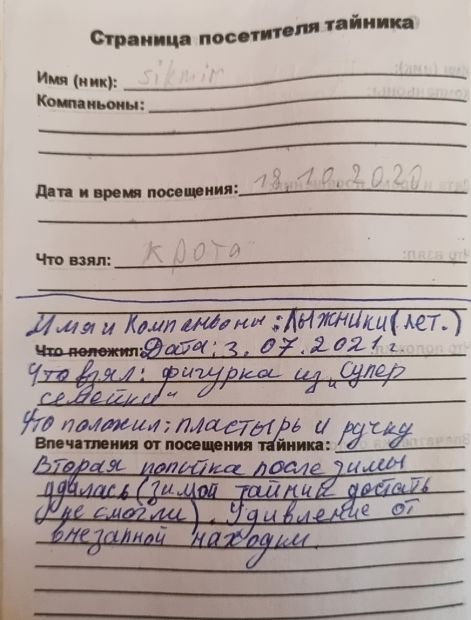 Страница посетителя тайника
Имя (ник): sikmir
Компаньоны:
Дата и время посещения: 18.10.2020
Что взял: крота
Имя и Компаньоны: Лыжники (лет.)
Что положил: Дата: 3.07.2021г
Что взял: фигурка из „Супер
семейки"
Что положил: пластырь и ручку
Впечатления от посещения тайника:
Вторая попытка после зимы
удалась (зимой тайник достать
не смогли). Удивление от
внезапной находки.